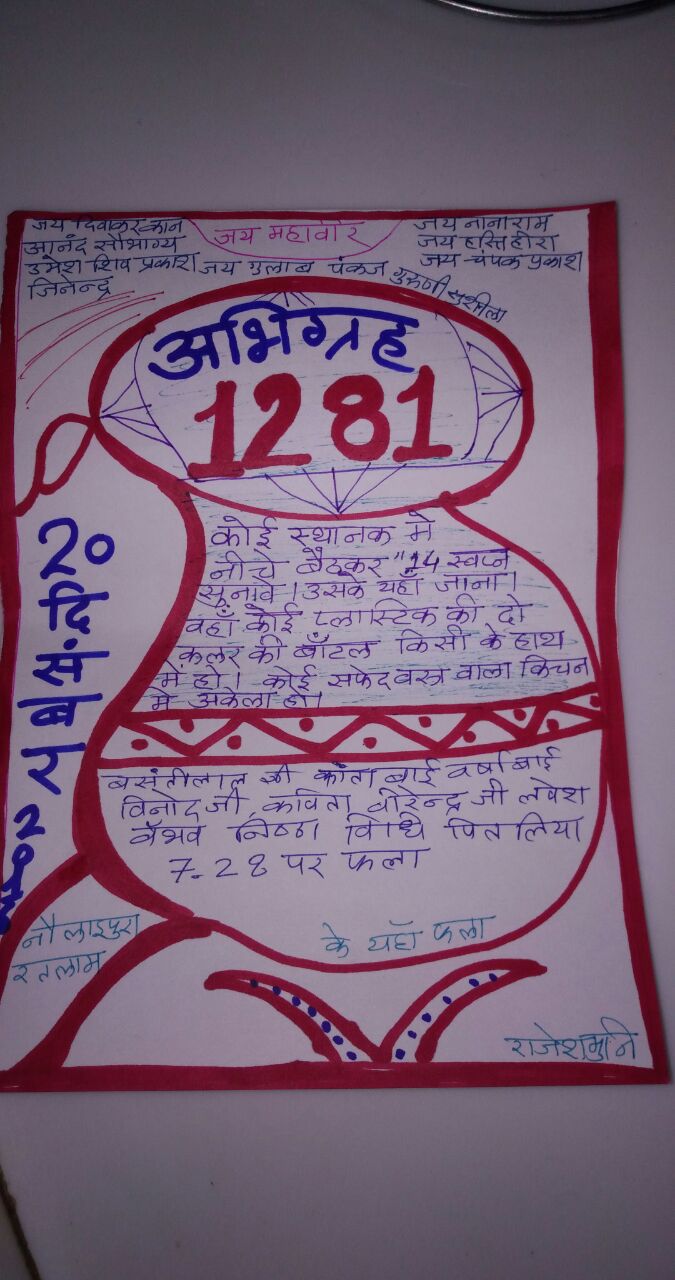 जय महावीर
जय दिवाकर कान
आनंद सौभाग्य
उमेश शिव प्रकाश
जिनेन्द्र
जय गुलाब पंकज गुरुणी सुशीला
जय नानाराम
जय हस्ति हीरा
जय चंपक प्रकाश
अभिग्रह
1281
कोई स्थानक मे
नीचे बैठकर "14 स्वप्न
सुनावे। उसके यहाँ जाना।
वहाँ कोई प्लास्टिक की दो
कलर की बॉटल किसी के हाथ
में हो। कोई सफेदवस्त्र वाला किचन
मे अकेला हो।
बसंतीलाल जी कांता बाई वर्षा बाई
विनोद जी कविता वीरेन्द्र जी लवेश
वैभव निष्ठा विधि पितलिया
7-28 पर फला
के यहाँ फला
20 दिसंबर
नौलाइपुरा
रतलाम
राजेशमुनि